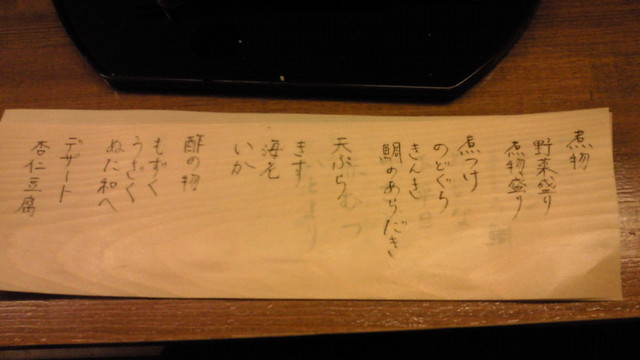 煮物
野菜盛り
煮物盛り
煮つけ
のどぐろ
きんき
鯛のあらだき
天ぷら
きす
海老
いか
酢の物
もずく
うざく
ぬた和へ
デザート
杏仁豆腐